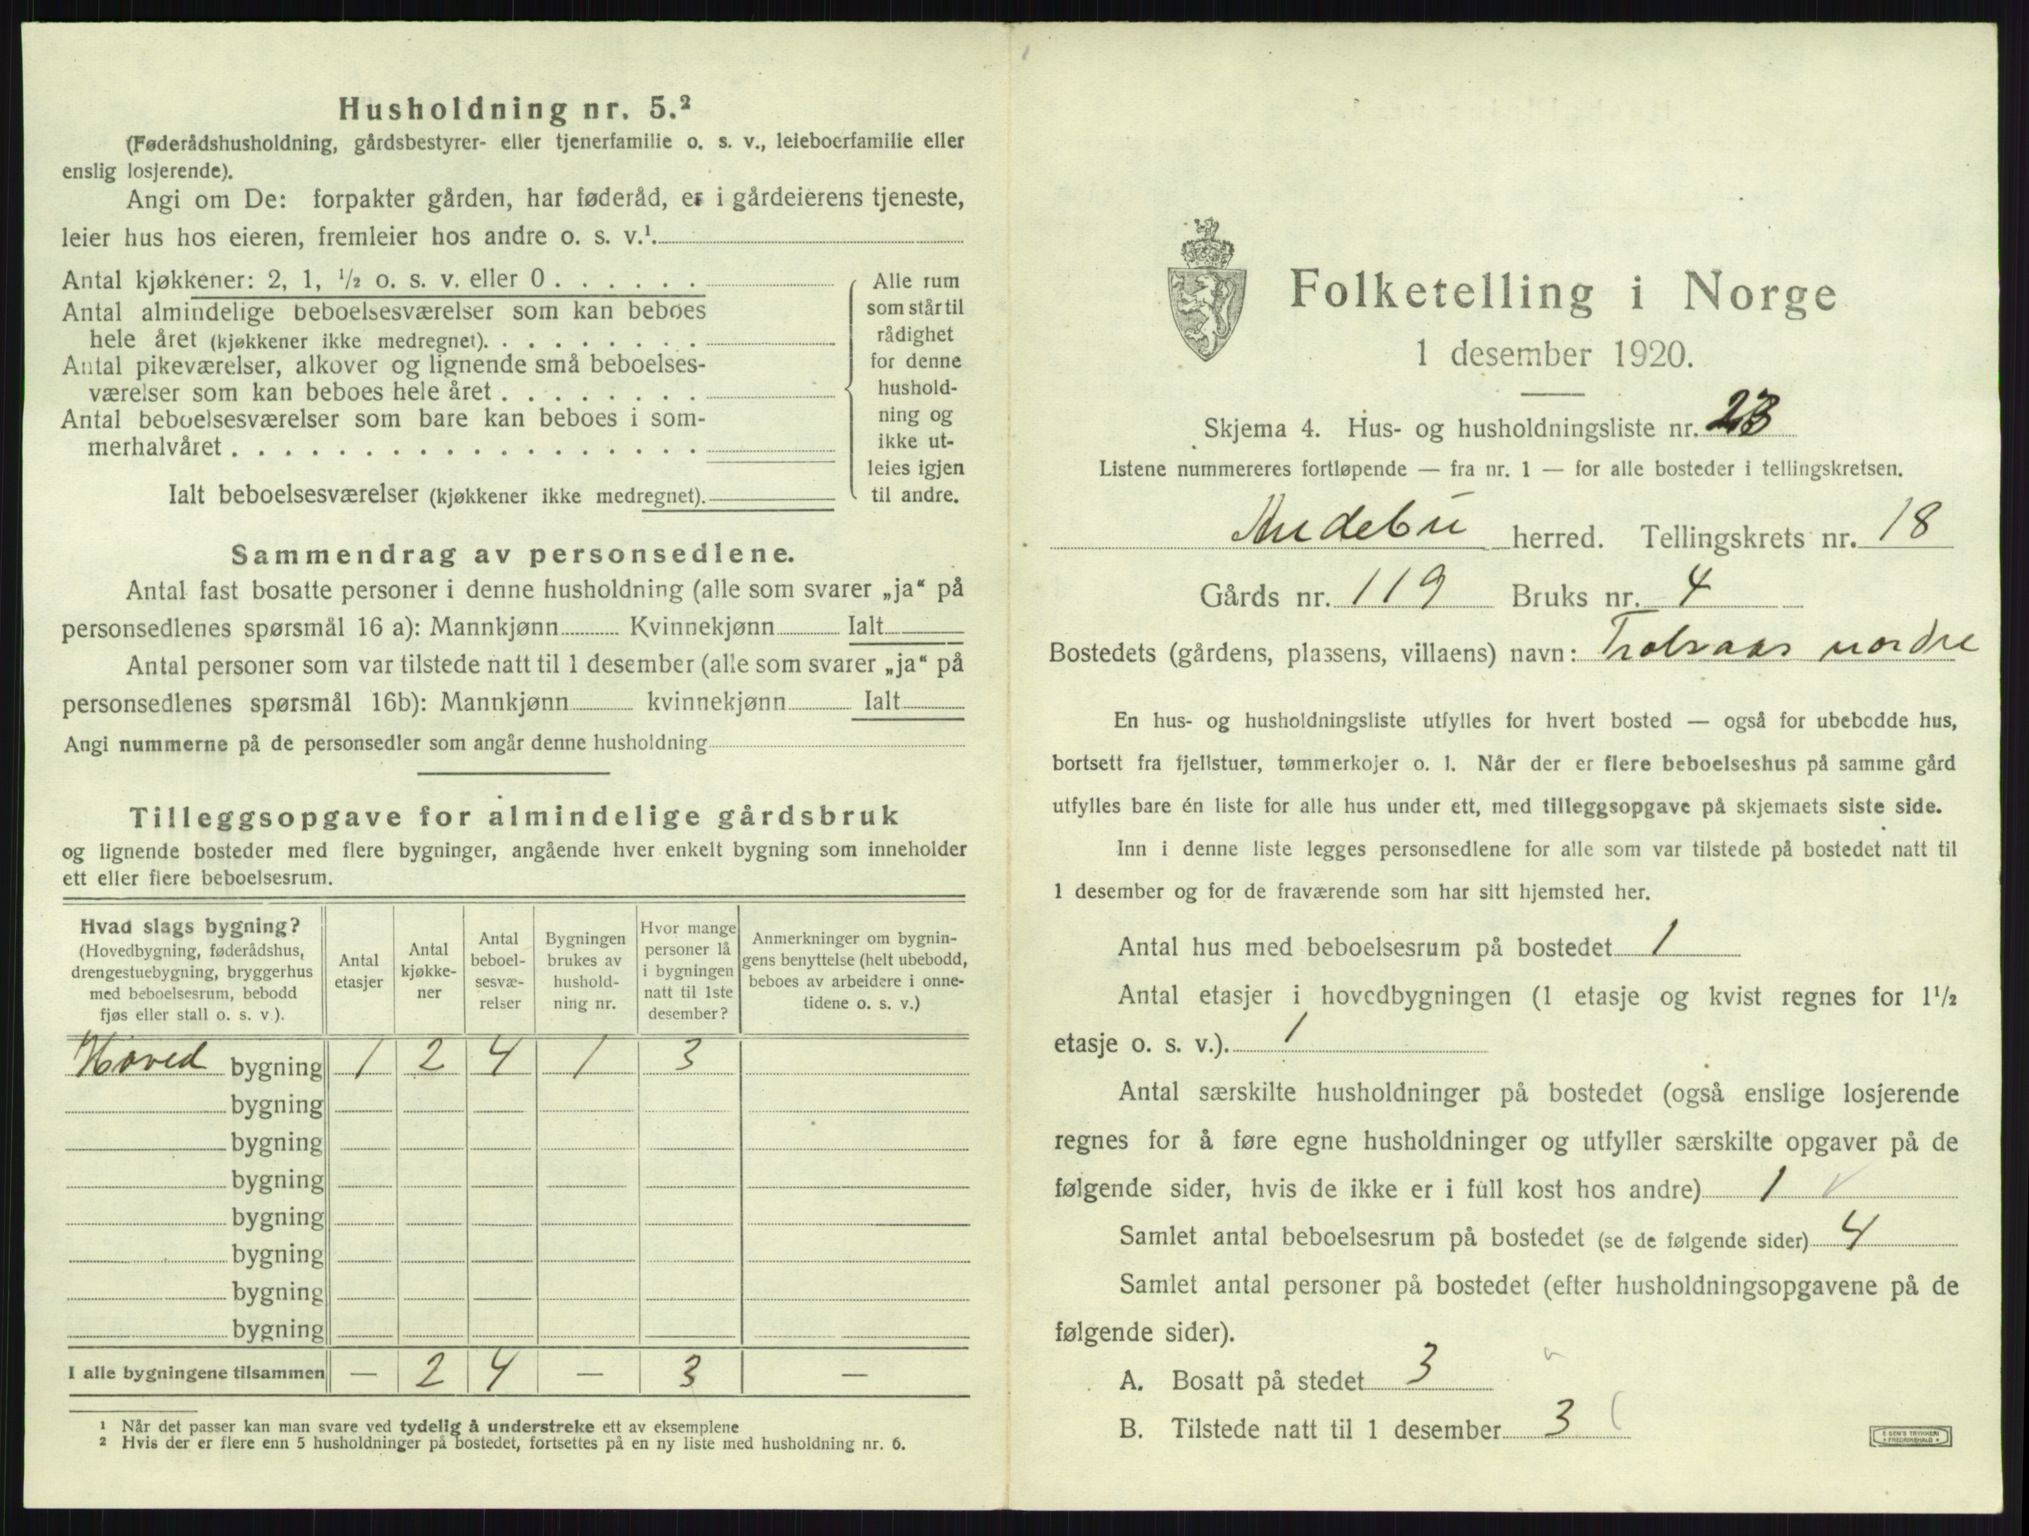 Husholdning nr. 5.²
(Føderådshusholdning, gårdsbestyrer- eller tjenerfamilie o. s. v., leieboerfamilie eller
enslig losjerende).
Angi om De: forpakter gården, har føderåd, er i gårdeierens tjeneste,
leier hus hos eieren, fremleier hos andre o. s. v.¹.
Antal kjøkkener: 2, 1, ¹/₂ o. s. v. eller 0 . . . . . .
Antal almindelige beboelsesværelser som kan beboes
hele året (kjøkkener ikke medregnet). . . . . . . . .
Antal pikeværelser, alkover og lignende små beboelses-
værelser som kan beboes hele året . . . . . . . .
Antal beboelsesværelser som bare kan beboes i som-
merhalvåret . . . . . . . . . . . . . . . . . .
Ialt beboelsesværelser (kjøkkener ikke medregnet).
Alle rum
som står til
rådighet
for denne
hushold-
ning og
ikke ut-
leies igjen
til andre.
Sammendrag av personsedlene.
Antal fast bosatte personer i denne husholdning (alle som svarer „ja“ på
personsedlenes spørsmål 16 a): Mannkjønn Kvinnekjønn Ialt
Antal personer som var tilstede natt til 1 desember (alle som svarer „ja“ på
personsedlenes spørsmål 16b): Mannkjønn kvinnekjønn Ialt
Angi nummerne på de personsedler som angår denne husholdning
Tilleggsopgave for almindelige gårdsbruk
og lignende bosteder med flere bygninger, angående hver enkelt bygning som inneholder
ett eller flere beboelsesrum.
Hvad slags bygning?
(Hovedbygning, føderådshus,
drengestuebygning, bryggerhus
med beboelsesrum, bebodd
fjøs eller stall o. s. v.).
Antal
etasjer
Antal
kjøkke-
ner
Antal
beboel-
sesvæ-
relser
Bygningen
brukes av
hushold-
ning nr.
Hvor mange
personer lå
i bygningen
natt til 1ste
desember?
Anmerkninger om bygnin-
gens benyttelse (helt ubebodd,
beboes av arbeidere i onne-
tidene o. s. v.)
Hoved bygning 1 2 4 1 3
bygning
bygning
bygning
bygning
bygning
bygning
bygning
I alle bygningene tilsammen — 2 4 — 3 —
¹ Når det passer kan man svare ved tydelig å understreke ett av eksemplene
² Hvis der er flere enn 5 husholdninger på bostedet, fortsettes på en ny liste med husholdning nr. 6.
Folketelling i Norge
1 desember 1920.
Skjema 4. Hus- og husholdningsliste nr. 23
Listene nummereres fortløpende — fra nr. 1 — for alle bosteder i tellingskretsen.
Andebu herred. Tellingskrets nr. 18
Gårds nr. 119 Bruks nr. 4
Bostedets (gårdens, plassens, villaens) navn: Trolsaas nordre
En hus- og husholdningsliste utfylles for hvert bosted — også for ubebodde hus,
bortsett fra fjellstuer, tømmerkojer o. l. Når der er flere beboelseshus på samme gård
utfylles bare én liste for alle hus under ett, med tilleggsopgave på skjemaets siste side.
Inn i denne liste legges personsedlene for alle som var tilstede på bostedet natt til
1 desember og for de fraværende som har sitt hjemsted her.
Antal hus med beboelsesrum på bostedet 1
Antal etasjer i hovedbygningen (1 etasje og kvist regnes for 1¹/₂
etasje o. s. v.). 1
Antal særskilte husholdninger på bostedet (også enslige losjerende
regnes for å føre egne husholdninger og utfyller særskilte opgaver på de
følgende sider, hvis de ikke er i full kost hos andre) 1
Samlet antal beboelsesrum på bostedet (se de følgende sider) 4
Samlet antal personer på bostedet (efter husholdningsopgavene på de
følgende sider).
A. Bosatt på stedet 3
B. Tilstede natt til 1 desember 3
E. SEM'S TRYKKERI
FREDRIKSHALD